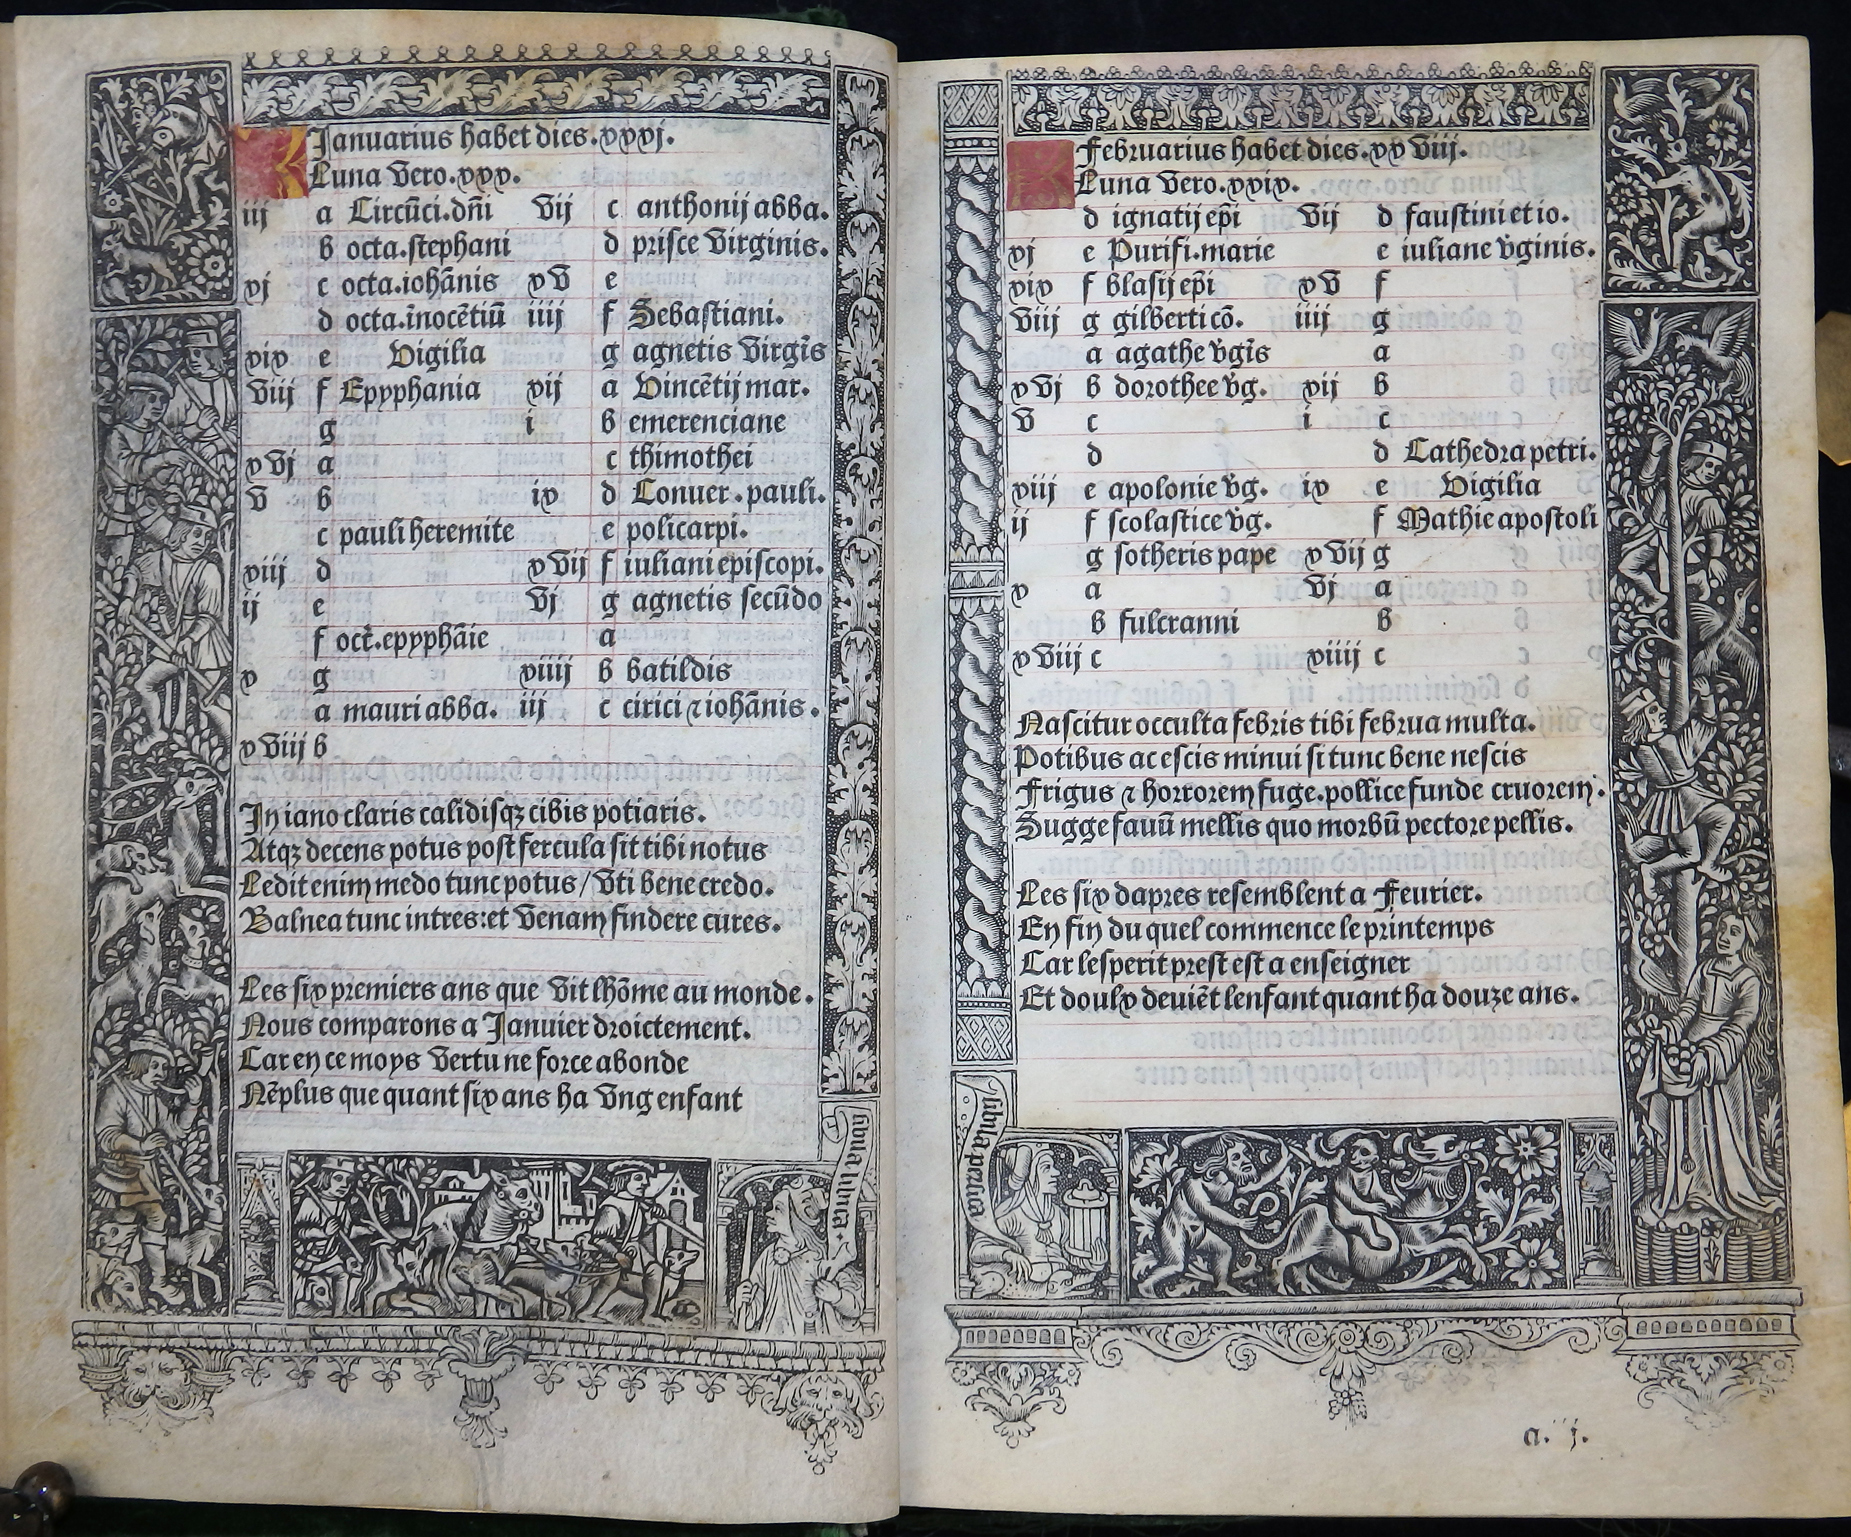 Januarius habet dies.xxxj.
Luna vero.xxx.
iij a Circũci.dñi vij c anthonij abba.
b octa.stephani d prisce virginis.
xj c octa.iohãnis xv e
d octa.ĩnocẽtiũ iiij f Sebastiani.
xix e Vigilia g agnetis virgĩs
viij f Epyphania xij a Vincẽtij mar.
g i b emerenciane
xvj a c thimothei
v b ix d Conuer.pauli.
c pauli heremite e policarpi.
xiij d xvij f iuliani episcopi.
ij e vj g agnetis secũdo
f oct̃.epyphãie a
x g xiiij b batildis
a mauri abba. iij c cirici ⁊ iohãnis.
xviij b
In iano claris calidisqꝫ cibis potiaris.
Atqꝫ decens potus post fercula sit tibi notus
Ledit enim medo tunc potus/vti bene credo.
Balnea tunc intres:et venam findere cures.
Les six premiers ans que vit lhõme au monde.
Nous comparons a Januier droictement.
Car en ce moys vertu ne force abonde
Nẽ plus que quant six ans ha vng enfant
sibila libica
Februarius habet dies.xxviij.
Luna vero.xxix.
d ignatij ep̃i vij d faustini et io.
xj e Purifi.marie e iuliane v̇ginis.
xix f blasij ep̃i xv f
viij g gilberti cõ. iiij g
a agathe v̇gĩs a
xvj b dorothee v̇g. xij b
v c i c
d d Cathedra petri.
xiij e apolonie v̇g. ix e Vigilia
ij f scolastice v̇g. f Mathie apostoli
g sotheris pape xvij g
x a vj a
b fulcranni b
xviij c xiiij c
Nascitur occulta febris tibi februa multa.
Potibus ac escis minui si tunc bene nescis
Frigus ⁊ horrorem fuge.pollice funde cruorem.
Sugge fauũ mellis quo morbũ pectore pellis.
Les six dapres resemblent a Feurier.
En fin du quel commence le printemps
Car lesperit prest est a enseigner
Et doulx deuiẽt lenfant quant ha douze ans.
sibila persica
a.ij.